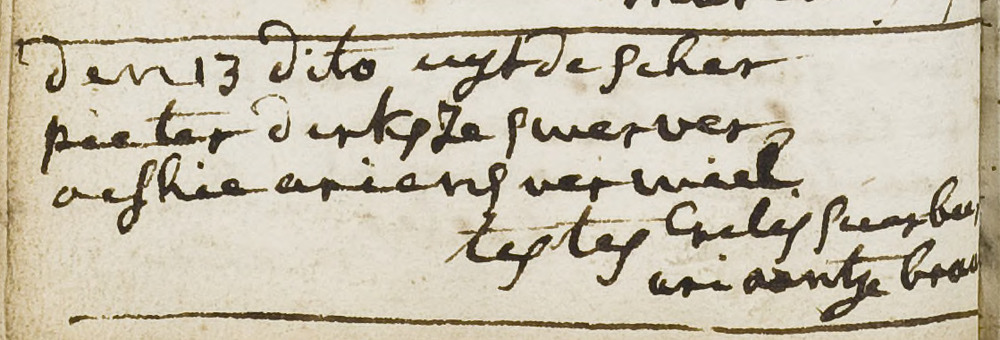 den 13 dito uyt de scher
pieter dirksze swerver
aeshie ariens vermeel
testes Crelis suerbu
ari arentse brou